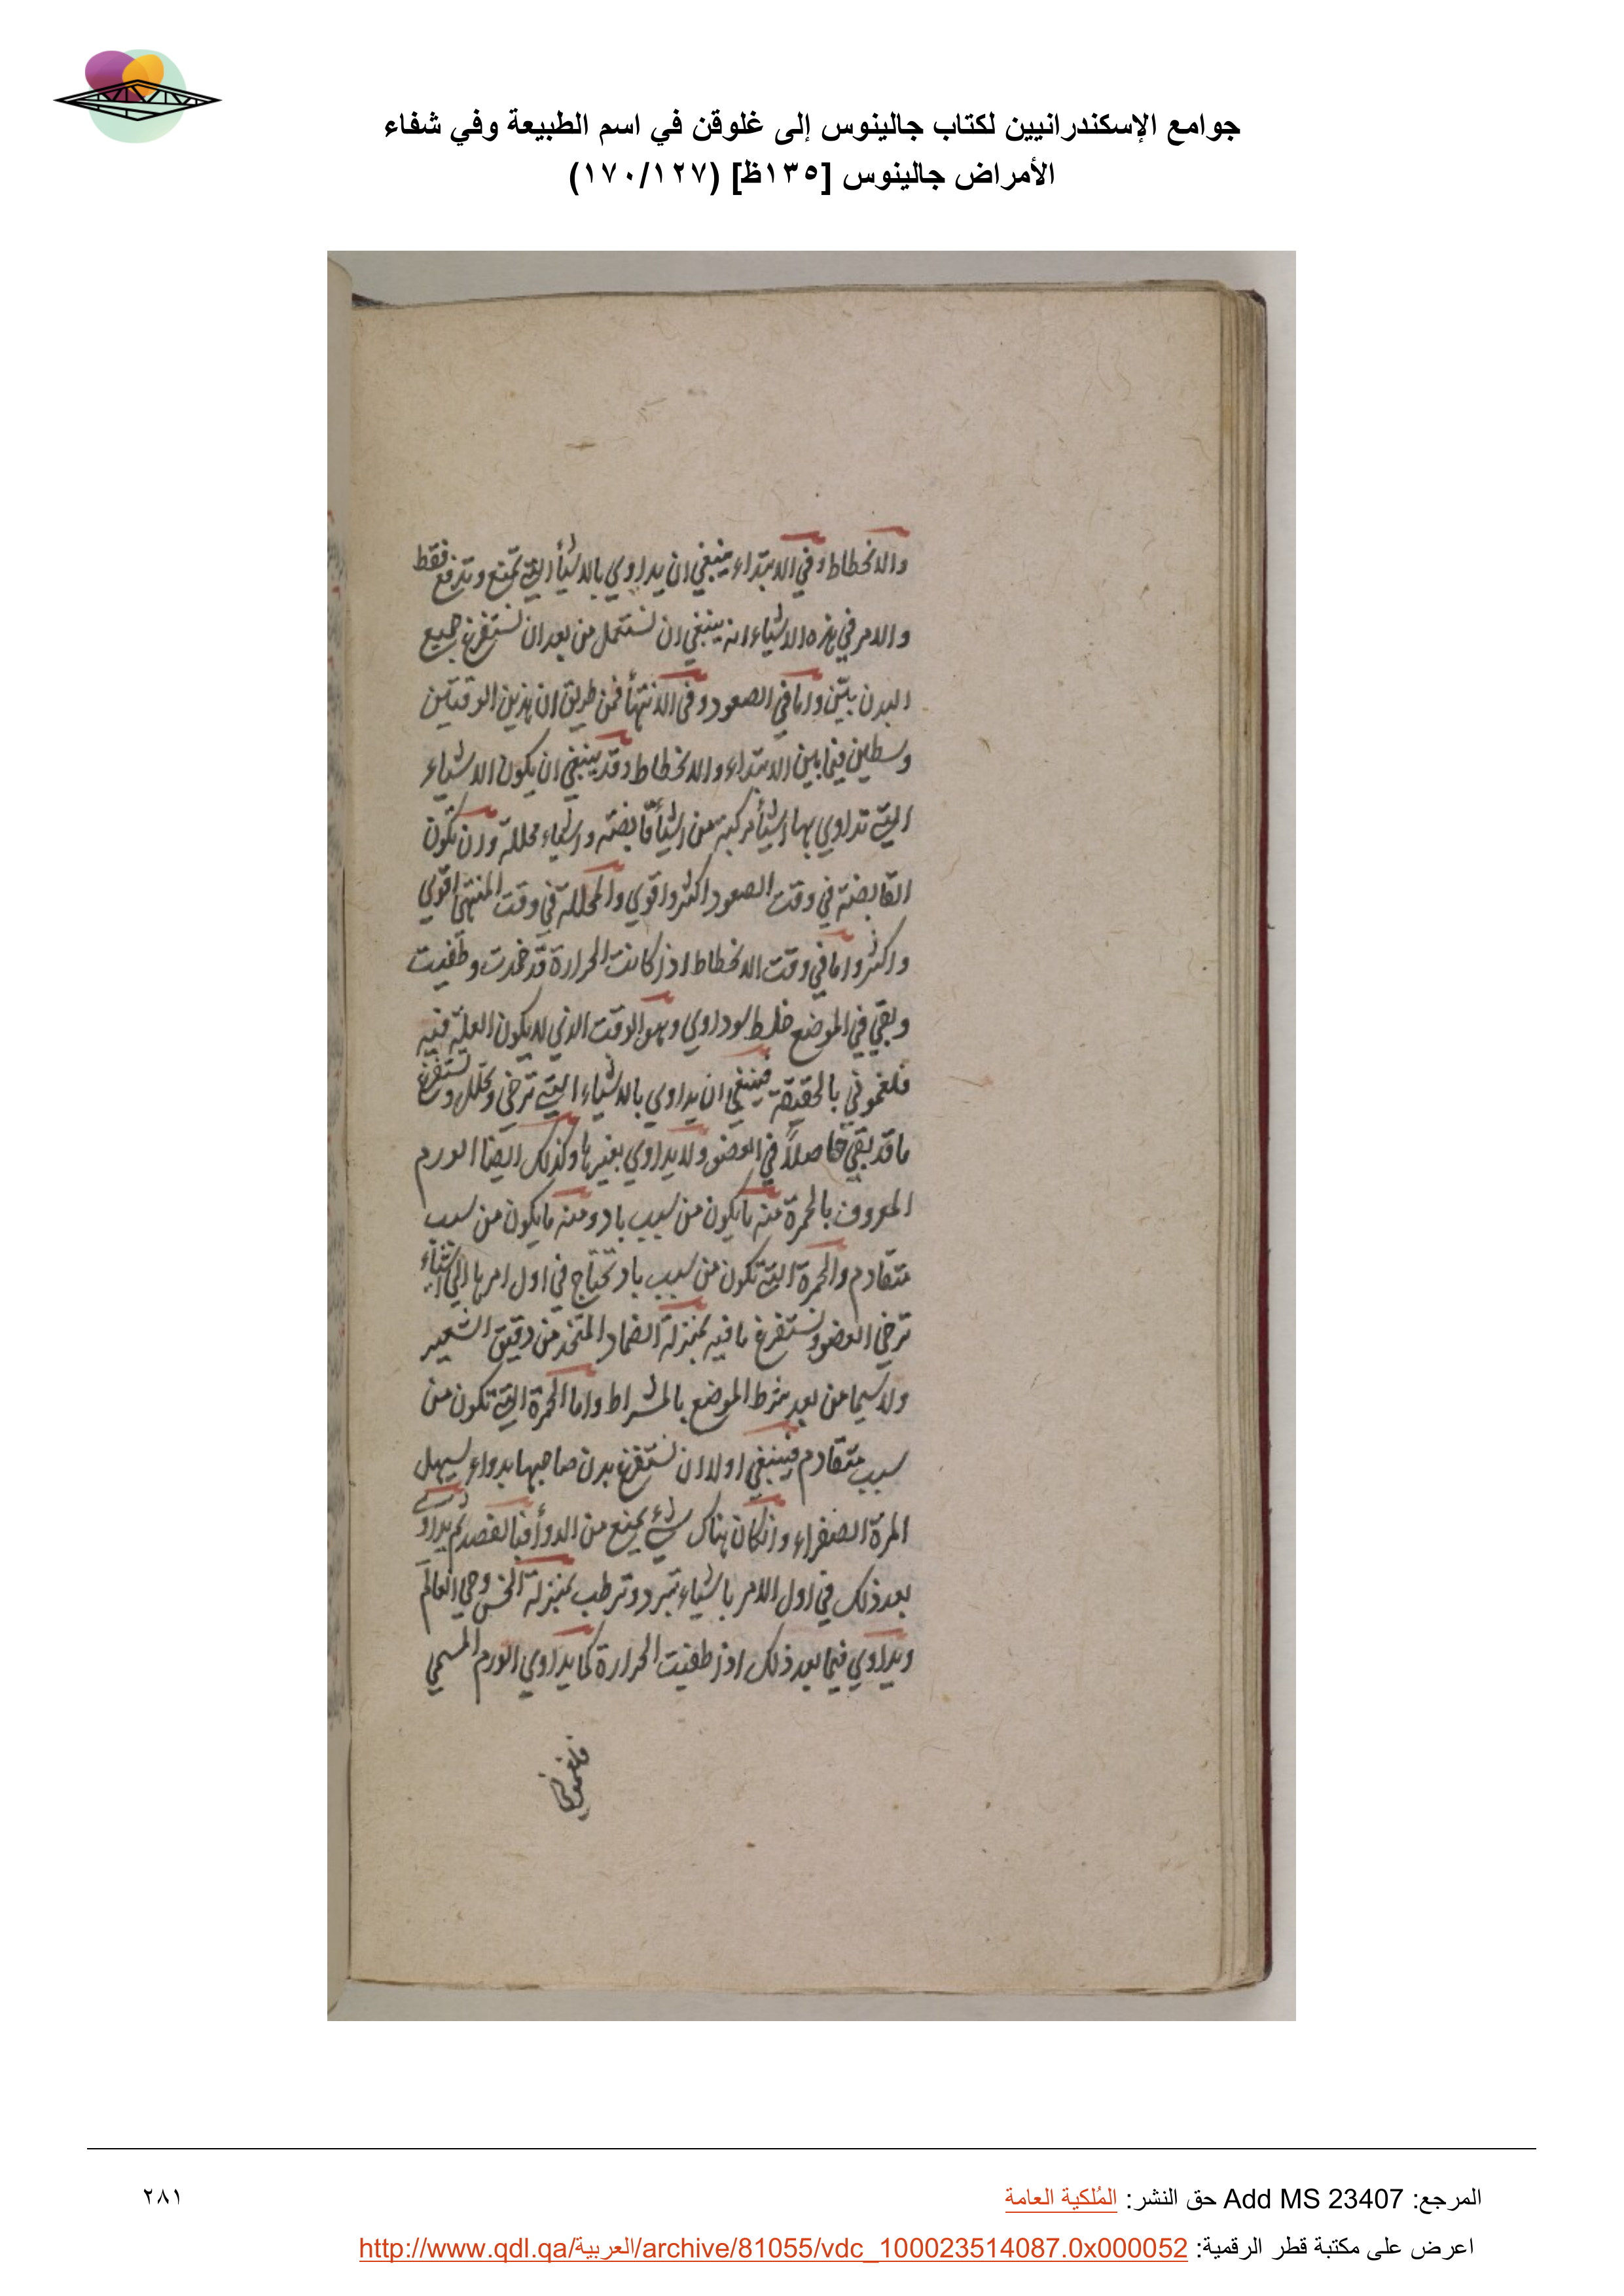 جوامع الإسكندرانيين لكتاب جالينوس إلى غلوقن في اسم الطبيعة وفي شفاء
الأمراض جالينوس [١٣٥ظ] (١٧٠/١٢٧)
والانحطاط وفي الابتداء ينبغي ان يداوي بالاشيأ التي تمنع وتدفع فقط
والامر في هذه الاشياء انه ينبغي ان تستعمل من بعد ان تستفرغ جميع
البدن بيّن واما في الصعود وفي الانتهأ فمن طريق ان هذين الوقتين
وسطين فيما بين الابتداء والانحطاط وقد ينبغي ان يكون الاشياء
التي تداوي بها اشيأ مركبة من اشيأ قابضة واشياء محللة وان تكون
القابضة في وقت الصعود اكثر واقوي والمحللة في وقت المنتهى اقوي
واكثر واما في وقت الانحطاط اذ كانت الحرارة قد خمدت وطفيت
وبقي في الموضع خلط سوداوي وهو الوقت الذي لا يكون العلة فيه
فلغموني بالحقيقة فينبغي ان يداوي بالاشياء التي ترخي وتحلل وتستفرغ
ما قد بقي حاصلاً في العضو ولا يداوي بغيرها وكذلك ايضا الورم
المعروف بالحمرة منه ما يكون من سبب باد ومنه ما يكون من سبب
متقادم والحمرة التي تكون من سبب باد تحتاج في اول امرها الي اشياء
ترخي العضو وتستفرغ ما فيه بمنزلة الضماد المتخذ من دقيق الشعير
ولا سيما من بعد شرط الموضع بالمشراط واما الحمرة التي تكون من
سبب متقادم فينبغي اولا ان تستفرغ بدن صاحبها بدواء يسهل
المرة الصفراء وان كان هناك شيء يمنع من الدوأ فبالفصد ثم يداوي
بعد ذلك في اول الامر باشياء تبرد وترطب بمنزلة الخس وحي العالم
ويداوي فيما بعد ذلك اذ طفيت الحرارة كما يداوي الورم المسمي
فلغموني
المرجع: Add MS 23407 حق النشر: المُلكية العامة
٢٨١
اعرض على مكتبة قطر الرقمية: http://www.qdl.qa/العربية/archive/81055/vdc_100023514087.0x000052